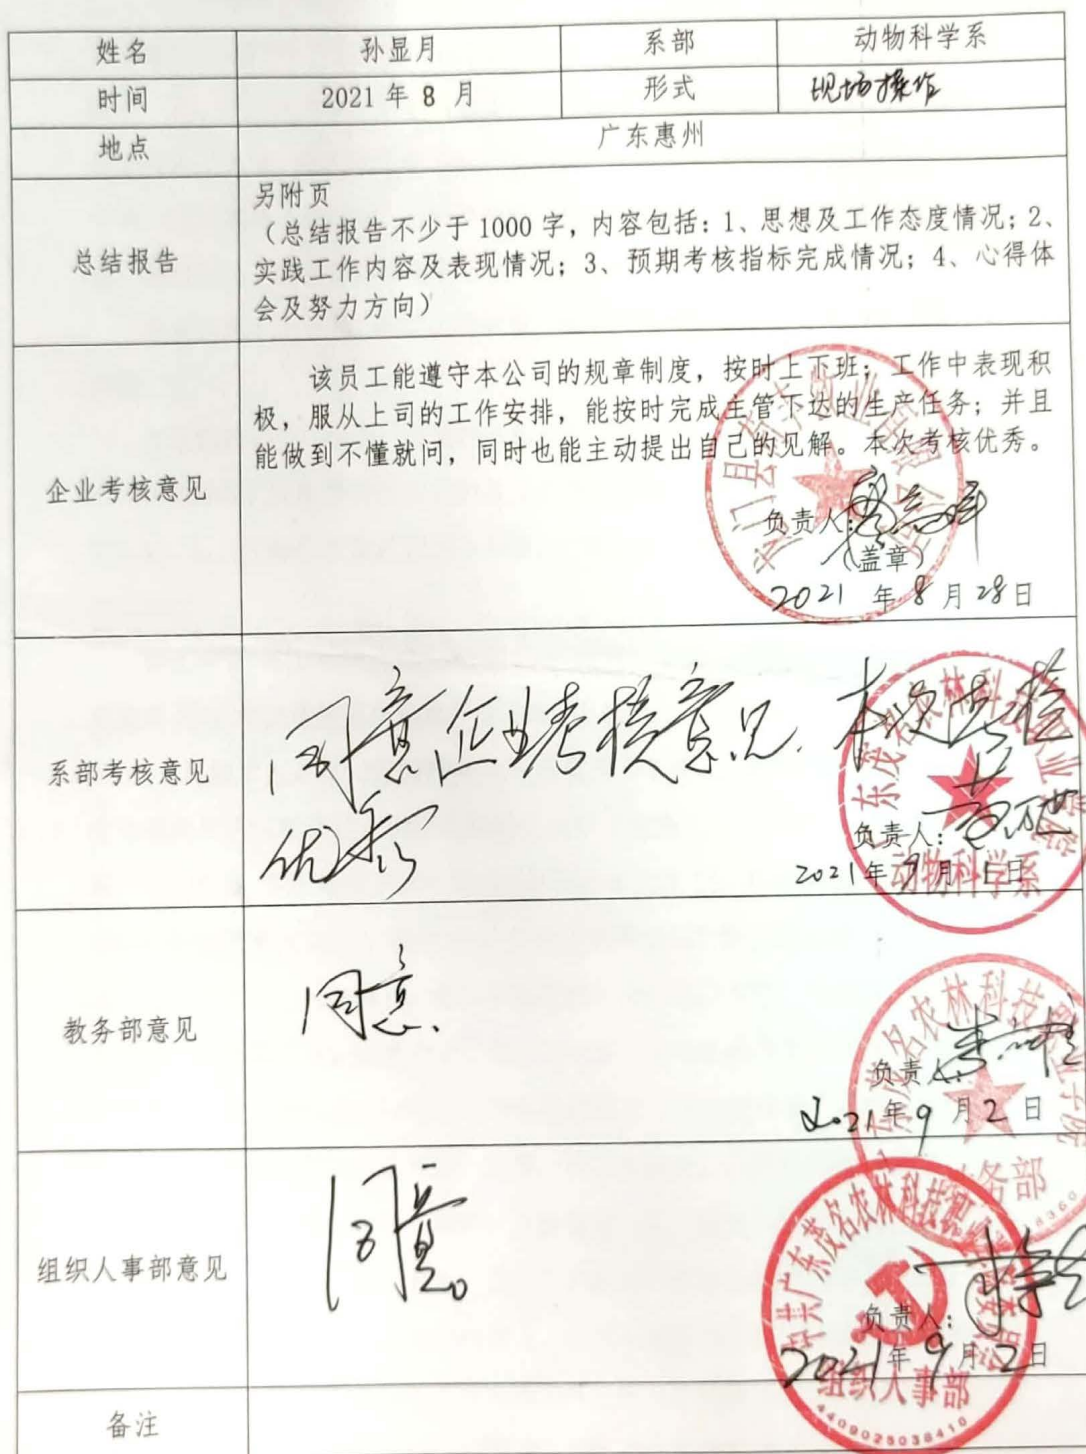 姓名 孙显月 系部 动物科学系
时间 2021 年 8 月 形式 现场操作
地点 广东惠州
总结报告
另附页
（总结报告不少于 1000 字，内容包括：1、思想及工作态度情况；2、
实践工作内容及表现情况；3、预期考核指标完成情况；4、心得体
会及努力方向）
企业考核意见
该员工能遵守本公司的规章制度，按时上下班；工作中表现积
极，服从上司的工作安排，能按时完成主管下达的生产任务；并且
能做到不懂就问，同时也能主动提出自己的见解。本次考核优秀。
负责人：
（盖章）
2021 年 8 月 28 日
系部考核意见
同意企业考核意见，本次考核
优秀
负责人：
2021 年 9 月 1 日
广东茂名农林科技职业学院
动物科学系
教务部意见
同意.
负责人：
2021 年 9 月 2 日
广东茂名农林科技职业学院
教务部
组织人事部意见
同意。
负责人：
2021 年 9 月 2 日
中共广东茂名农林科技职业学院委员会
组织人事部
4409025038410
备注